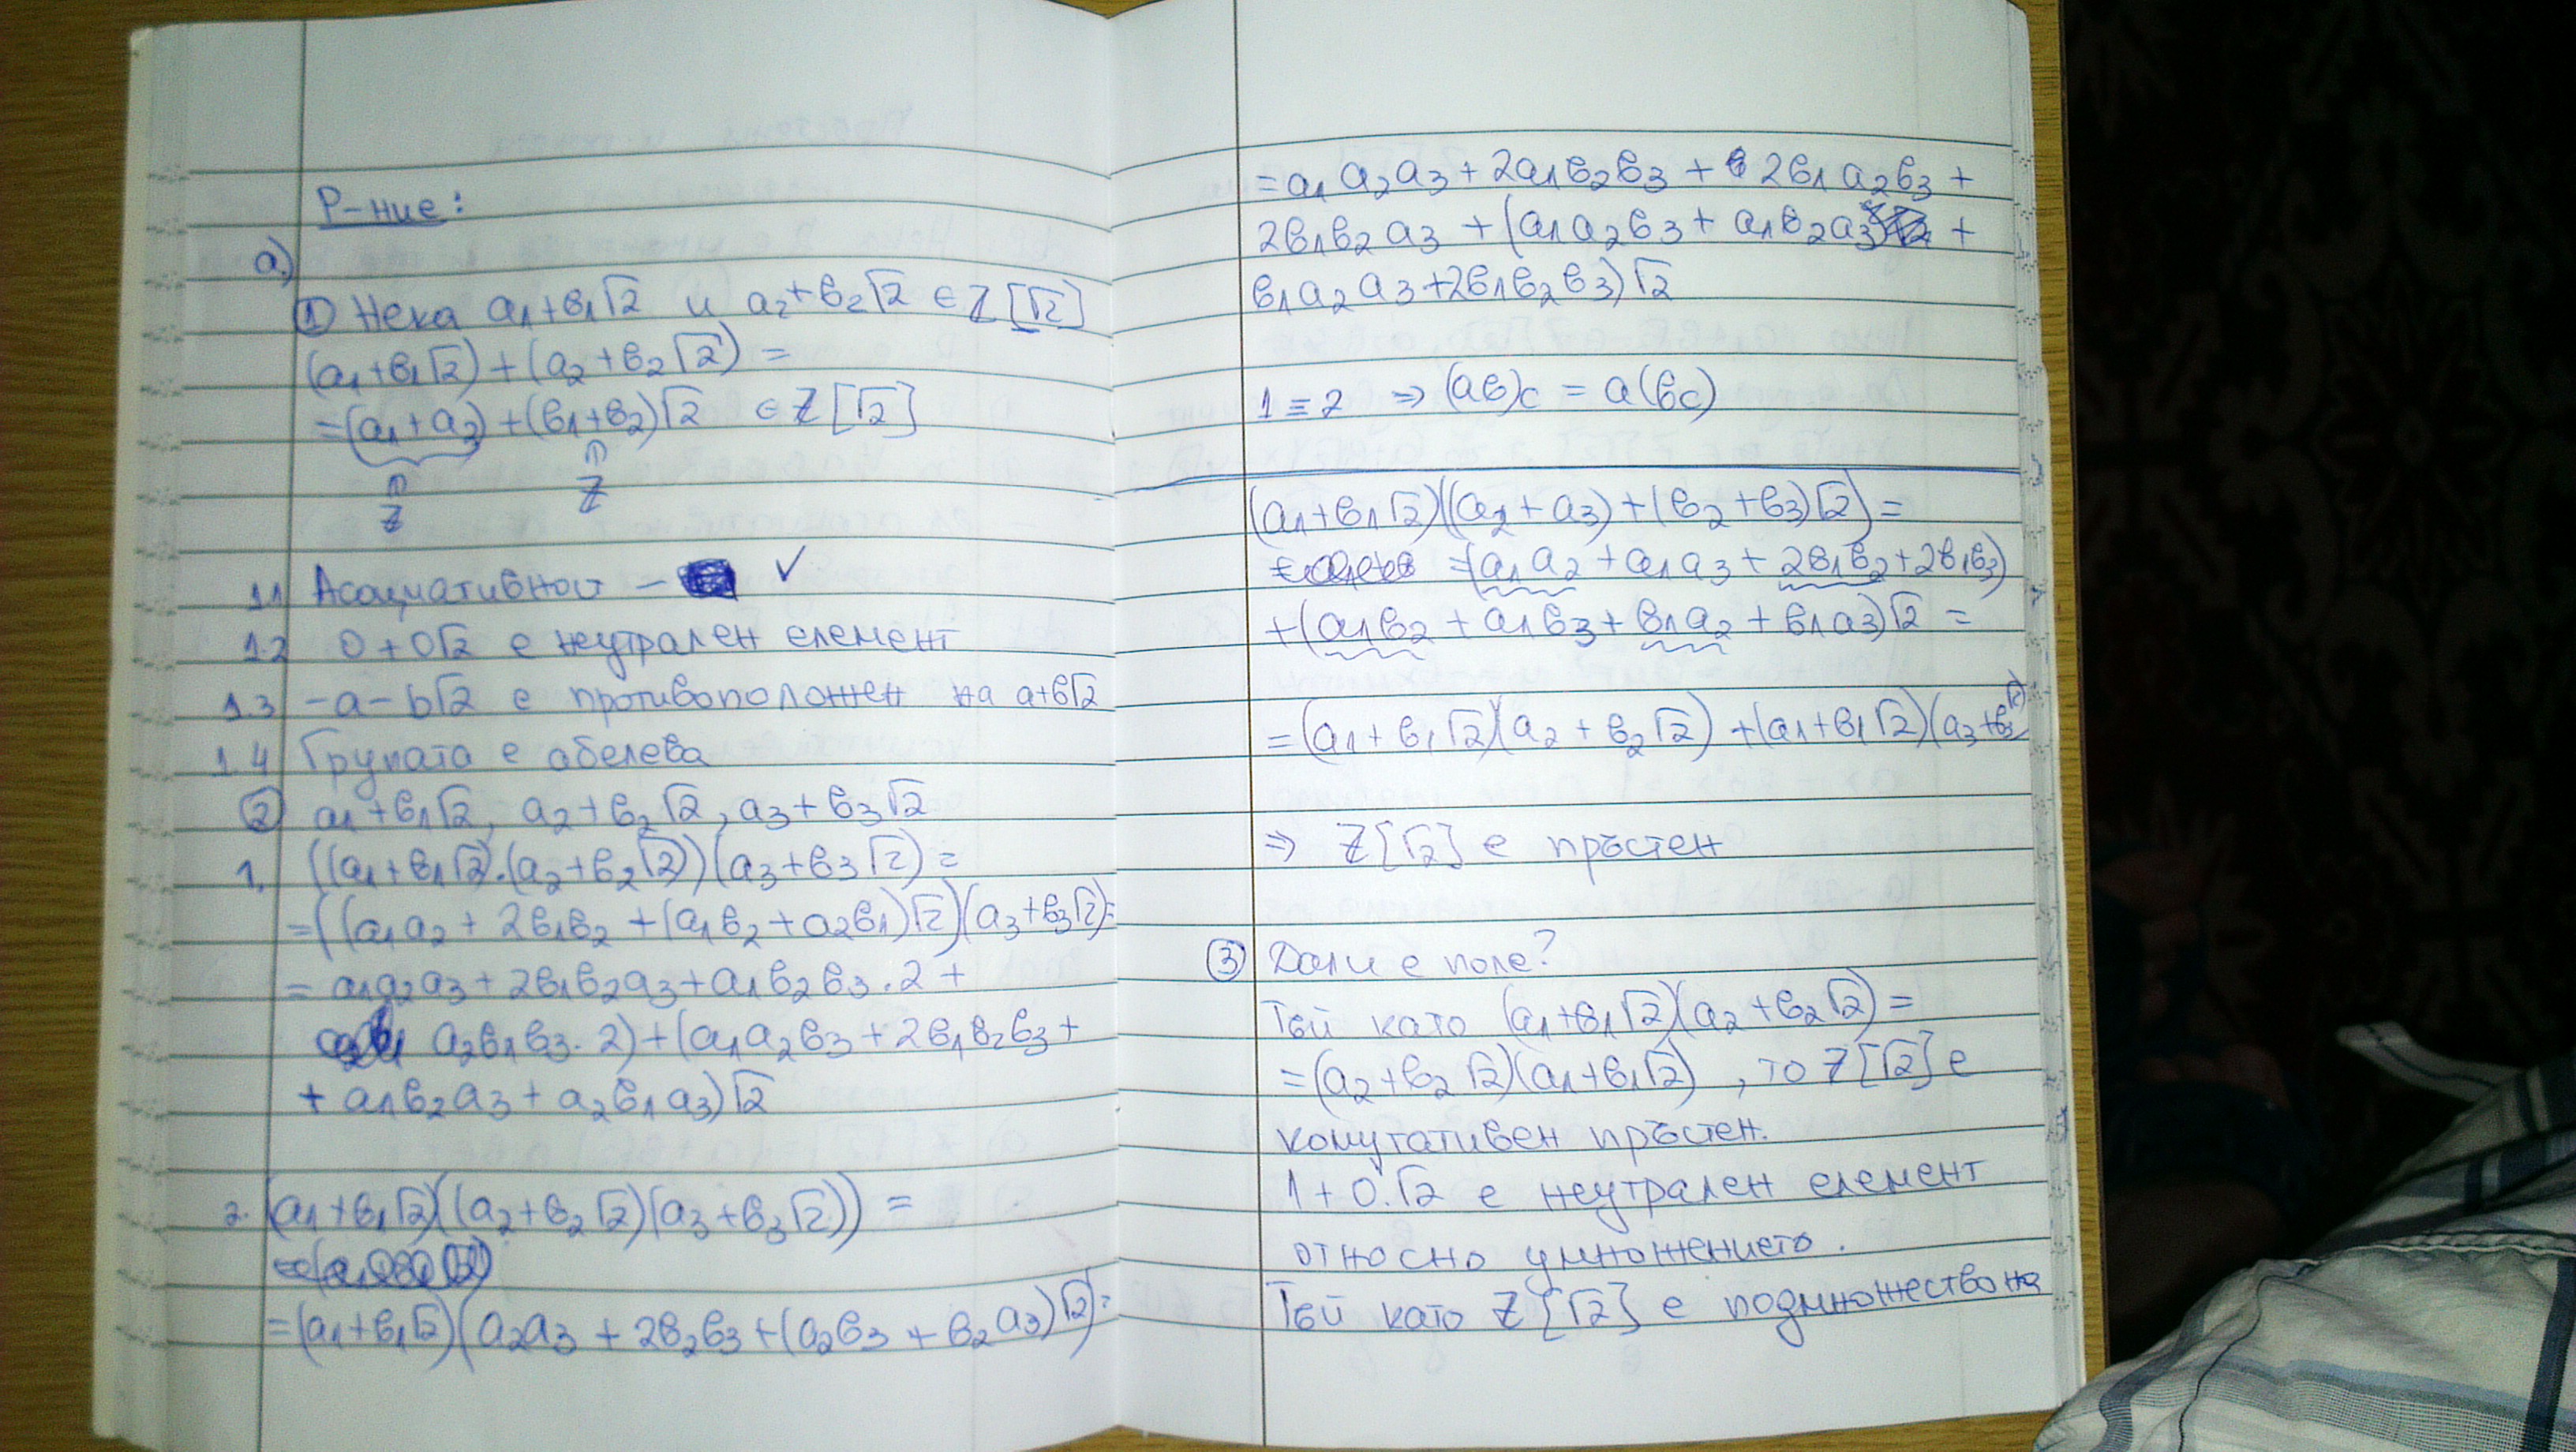 Р-ние:
а)
① Нека a₁+в₁√2 и a₂+в₂√2 ∈ Z[√2]
(a₁+в₁√2)+(a₂+в₂√2) =
=(a₁+a₂)+(в₁+в₂)√2 ∈ Z[√2]
∩ ∩
Z Z
1.1 Асоциативност – ✓
1.2 0+0√2 е неутрален елемент
1.3 -a-b√2 е противоположен на a+в√2
1.4 Групата е абелева
② a₁+в₁√2, a₂+в₂√2, a₃+в₃√2
1. ((a₁+в₁√2).(a₂+в₂√2))(a₃+в₃√2)=
=((a₁a₂+2в₁в₂+(a₁в₂+a₂в₁)√2)(a₃+в₃√2)=
= a₁a₂a₃+2в₁в₂a₃+a₁в₂в₃.2+
a₂в₁в₃.2)+(a₁a₂в₃+2в₁в₂в₃+
+ a₁в₂a₃+a₂в₁a₃)√2
2. (a₁+в₁√2)((a₂+в₂√2)(a₃+в₃√2)) =
=(a₁+в₁√2)(a₂a₃+2в₂в₃+(a₂в₃+в₂a₃)√2)=
=a₁a₂a₃+2a₁в₂в₃+2в₁a₂в₃+
2в₁в₂a₃+(a₁a₂в₃+a₁в₂a₃+
в₁a₂a₃+2в₁в₂в₃)√2
1≡2 ⇒ (aв)c = a(вc)
(a₁+в₁√2)((a₂+a₃)+(в₂+в₃)√2)=
=(a₁a₂+a₁a₃+2в₁в₂+2в₁в₃)
+(a₁в₂+a₁в₃+в₁a₂+в₁a₃)√2 =
=(a₁+в₁√2)(a₂+в₂√2)+(a₁+в₁√2)(a₃+в₃√2)
⇒ Z[√2] е пръстен
③ Дали е поле?
Тъй като (a₁+в₁√2)(a₂+в₂√2)=
=(a₂+в₂√2)(a₁+в₁√2), то Z[√2] е
комутативен пръстен.
1+0.√2 е неутрален елемент
относно умножението.
Тъй като Z[√2] е подмножество на